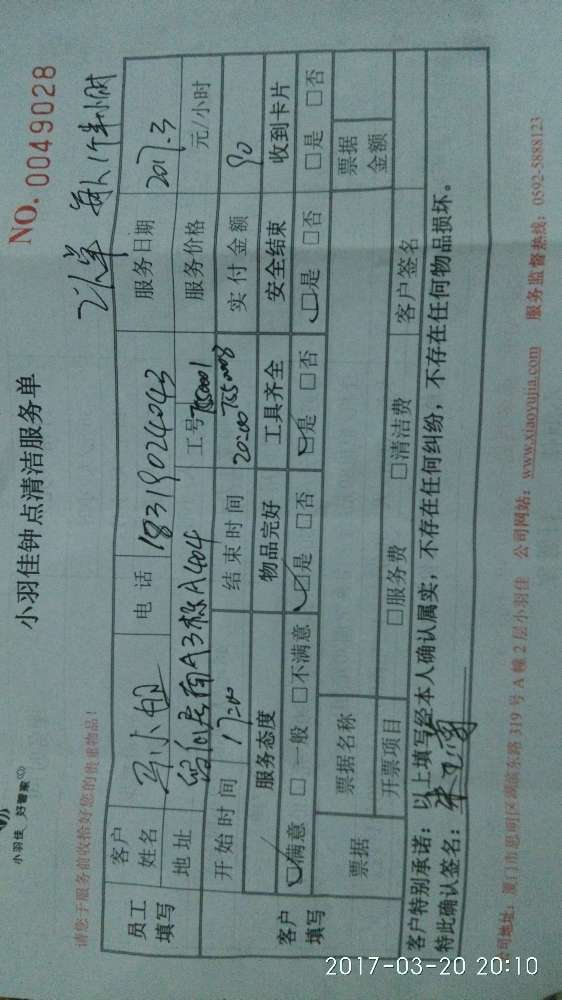 小羽佳 好管家
小羽佳钟点清洁服务单
NO. 0049028
请您于服务前收拾好您的贵重物品！
每人1个半小时
员工填写
客户姓名
小姐
电话
18319024043
服务日期
2017.3
地址
南A3栋A404
工号
服务价格
元/小时
开始时间
17:00
结束时间
20:00
实付金额
90
客户填写
服务态度
物品完好
工具齐全
安全结束
收到卡片
☑满意 □一般 □不满意
☑是 □否
☑是 □否
☑是 □否
□是 □否
票据
票据名称
票据金额
开票项目
□服务费
□清洁费
客户签名
客户特别承诺：以上填写经本人确认属实，不存在任何纠纷，不存在任何物品损坏。
特此确认签名：
公司地址：厦门市思明区湖滨东路319号A幢2层小羽佳 公司网站：www.xiaoyujia.com 服务监督热线：0592-5888123
2017-03-20 20:10